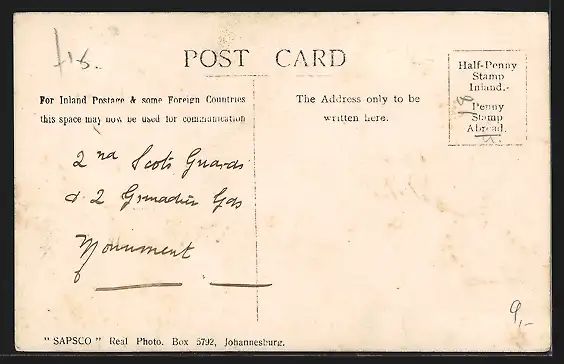 POST CARD
For Inland Postage & some Foreign Countries
this space may now be used for communication
The Address only to be
written here.
Half-Penny
Stamp
Inland.
Penny
Stamp
Abroad.
2nd Scots Guards
& 2 Grenadier Gds
Monument
9,-
"SAPSCO" Real Photo. Box 5792, Johannesburg.